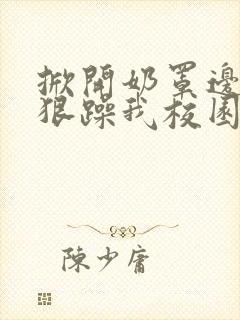 掀開奶罩邊
狠躁我校園
陳少庸